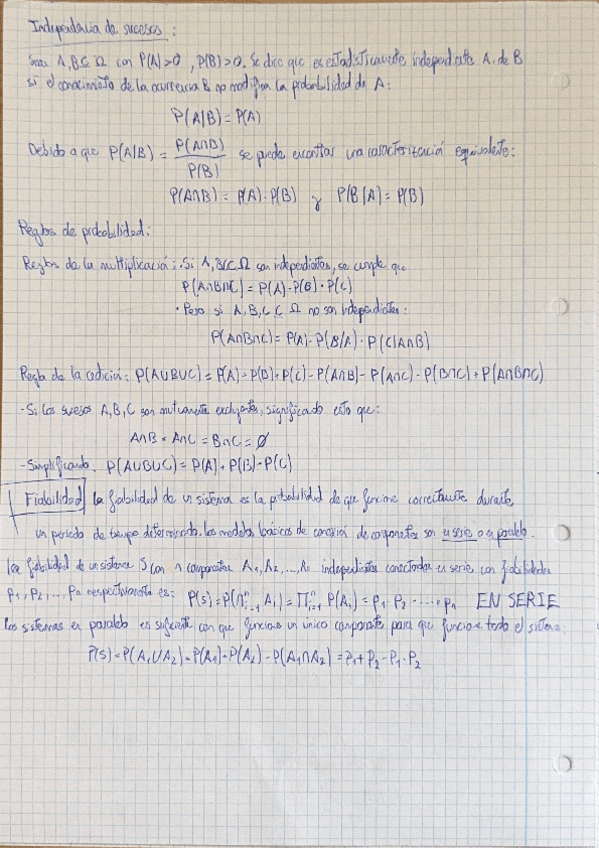 Independencia de sucesos:
Sean A, B ⊂ Ω con P(A)>0, P(B)>0. Se dice que es estadísticamente independiente A de B
si el conocimiento de la ocurrencia B no modifica la probabilidad de A:
P(A|B) = P(A)
Debido a que P(A|B) = P(A∩B) / P(B) se puede encontrar una caracterización equivalente:
P(A∩B) = P(A)·P(B) y P(B|A) = P(B)
Reglas de probabilidad:
Reglas de la multiplicación: · Si A, B, C ⊂ Ω son independientes, se cumple que
P(A∩B∩C) = P(A)·P(B)·P(C)
· Pero si A, B, C ⊆ Ω no son independientes:
P(A∩B∩C) = P(A)·P(B/A)·P(C|A∩B)
Regla de la adición: P(A∪B∪C) = P(A)+P(B)+P(C)-P(A∩B)-P(A∩C)-P(B∩C)+P(A∩B∩C)
-Si los sucesos A, B, C son mutuamente excluyentes, significando esto que:
A∩B = A∩C = B∩C = Ø
-Simplificando: P(A∪B∪C) = P(A)+P(B)+P(C)
Fiabilidad la fiabilidad de un sistema es la probabilidad de que funcione correctamente durante
un período de tiempo determinado, los modelos básicos de conexión de componentes son en serie o en paralelo.
La fiabilidad de un sistema S con n componentes A1, A2, ..., An independientes conectados en serie con fiabilidades
p1, p2, ... pn respectivamente es: P(S) = P(∩ⁿᵢ₌₁ Ai) = ∏ⁿᵢ₌₁ P(Ai) = p1·p2·....·pn EN SERIE
Los sistemas en paralelo es suficiente con que funcione un único componente para que funcione todo el sistema:
P(S) = P(A1∪A2) = P(A1)+P(A2)-P(A1∩A2) = p1+p2-p1·p2